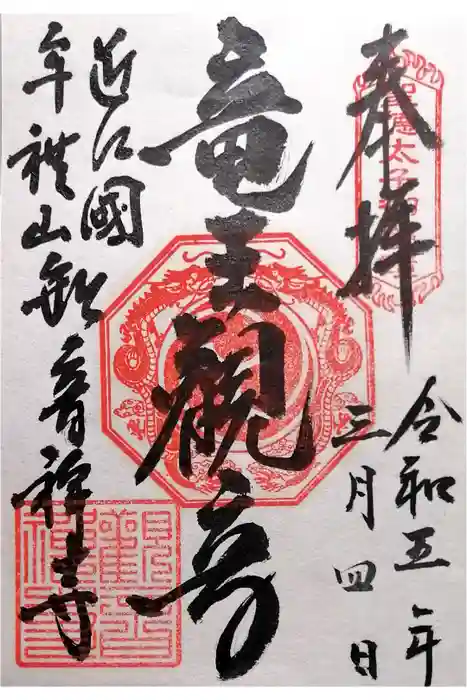 奉拝
令和五年
三月四日
竜王観音
近江國
牟禮山観音禅寺